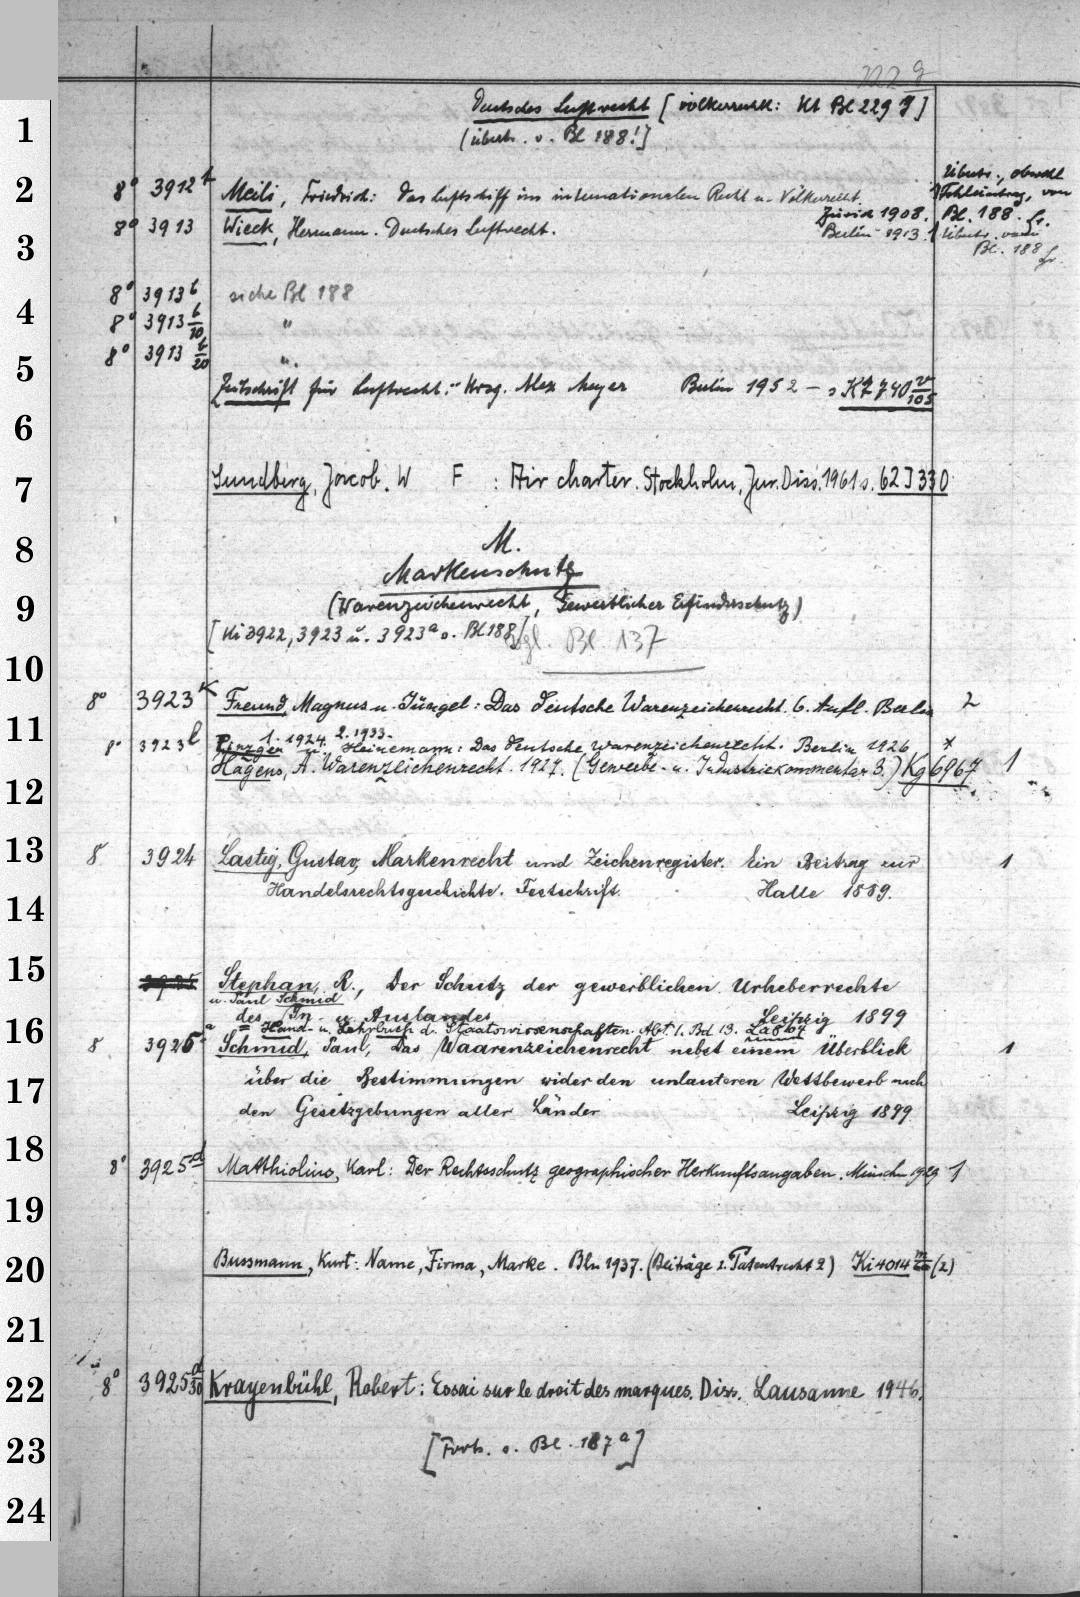 222 g
Deutsches Luftrecht [völkerrechtl: Kt Bl 229 g]
[übertr. v. Bl 188!]
8° 3912 t Meili, Friedrich: Das Luftschiff im internationalen Recht u. Völkerrecht. Zürich 1908. Übertr., obwohl Fehleintrag, von Bl. 188. Gr.
8° 3913 Wieck, Hermann. Deutsches Luftrecht. Berlin 1913. Übertr. von Bl. 188 Gr.
8° 3913 b siehe Bl 188
8° 3913 b/10 "
8° 3913 b/20 "
Zeitschrift für Luftrecht. Hrsg. Alex Meyer Berlin 1952 — s Kz 7740 v/105
Sundberg, Jacob. W F : Air charter. Stockholm, Jur. Diss. 1961 s. 62 J 330
M.
Markenschutz
(Warenzeichenrecht, Gewerblicher Erfinderschutz)
[Ki 3922, 3923 u. 3923 a s. Bl 188] vgl. Bl. 137
8° 3923 k Freund, Magnus u. Jüngel: Das deutsche Warenzeichenrecht. 6. Aufl. Berlin 2
1. 1924. 2. 1933.
8° 3923 l Pinzger u. Heinemann: Das deutsche Warenzeichenrecht. Berlin 1926 *
Hagens, A. Warenzeichenrecht. 1927. (Gewerbe- u. Industriekommentar 3.) Kg 6967 1
8° 3924 Lastig, Gustav, Markenrecht und Zeichenregister. Ein Beitrag zur 1
Handelsrechtsgeschichte. Festschrift. Halle 1889.
3925 Stephan, R., Der Schutz der gewerblichen Urheberrechte
u. Paul Schmid
des In- u. Auslandes Leipzig 1899
= Hand- u. Lehrbuch d. Staatswissenschaften. Abt 1. Bd 13.
8° 3925 a Schmid, Paul, Das Waarenzeichenrecht nebst einem Überblick 1
über die Bestimmungen wider den unlauteren Wettbewerb nach
den Gesetzgebungen aller Länder Leipzig 1899
8° 3925 d Matthiolius, Karl: Der Rechtsschutz geographischer Herkunftsangaben. München 1929 1
Bussmann, Kurt: Name, Firma, Marke. Bln 1937. (Beiträge z. Patentrecht 2) Ki 4014 m/60 (2)
8° 3925 d/30 Krayenbühl, Robert: Essai sur le droit des marques. Diss. Lausanne 1946.
[Forts. s. Bl. 187 a]
1
2
3
4
5
6
7
8
9
10
11
12
13
14
15
16
17
18
19
20
21
22
23
24